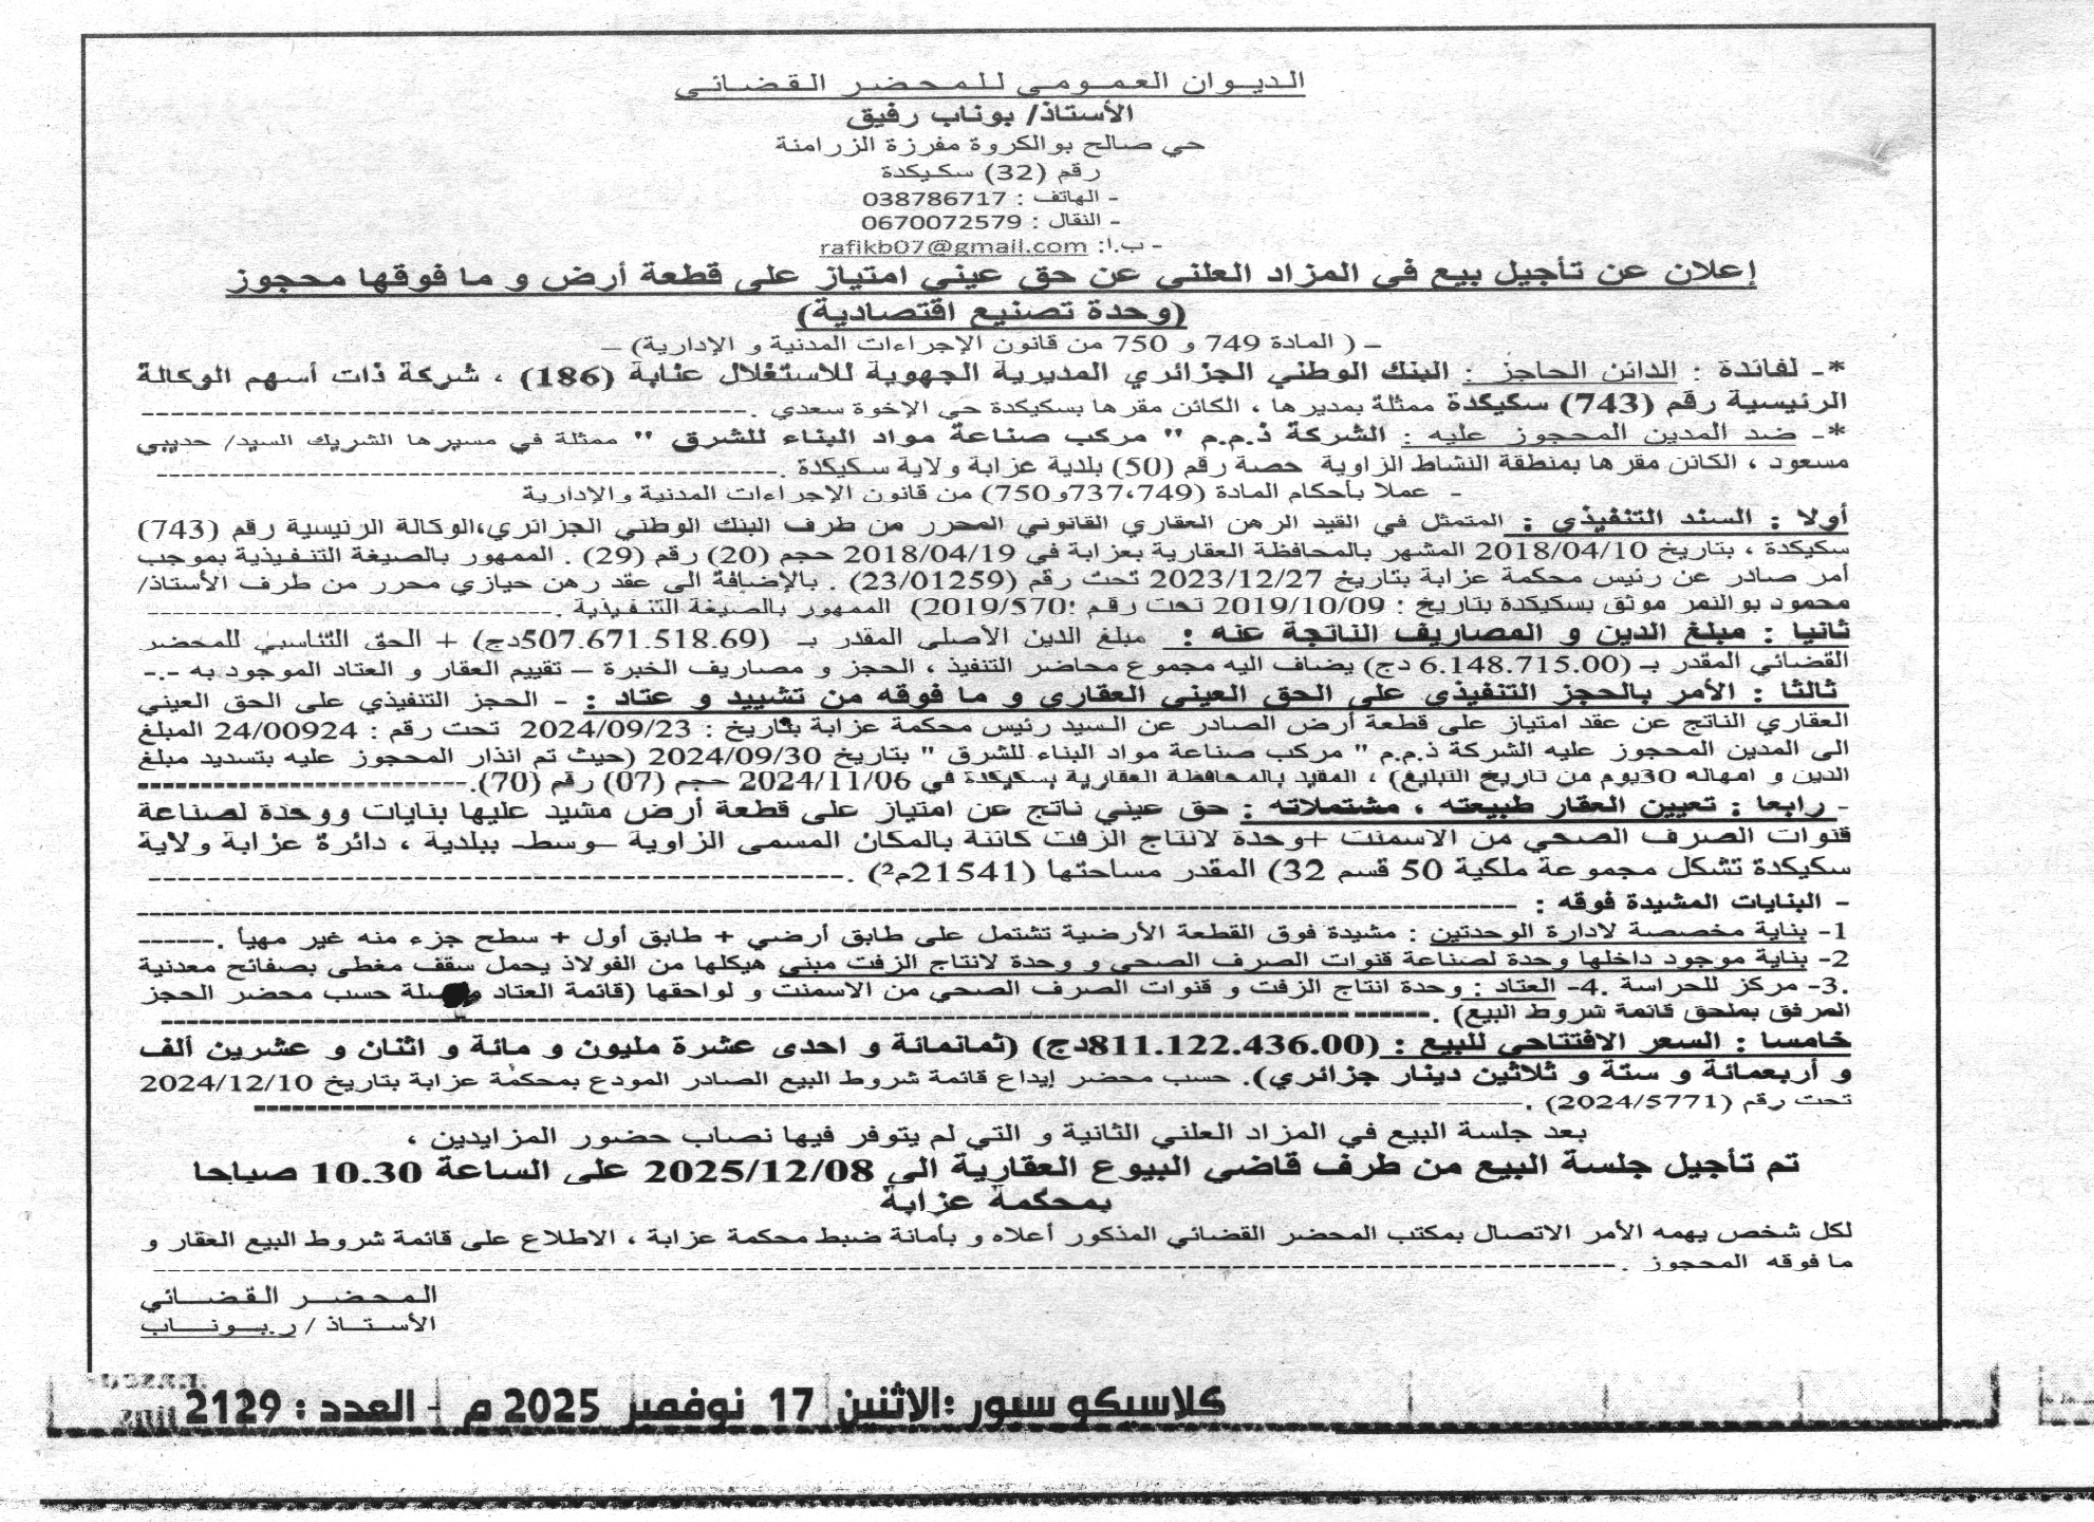 الديوان العمومي للمحضر القضائي
الأستاذ/ بوناب رفيق
حي صالح بوالكروة مفرزة الزرامنة
رقم (32) سكيكدة
- الهاتف : 038786717
- النقال : 0670072579
- ب.ا: rafikb07@gmail.com
إعلان عن تأجيل بيع في المزاد العلني عن حق عيني امتياز على قطعة أرض و ما فوقها محجوز
(وحدة تصنيع اقتصادية)
– ( المادة 749 و 750 من قانون الإجراءات المدنية و الإدارية) –
*- لفائدة : الدائن الحاجز : البنك الوطني الجزائري المديرية الجهوية للاستغلال عنابة (186) ، شركة ذات أسهم الوكالة
الرئيسية رقم (743) سكيكدة ممثلة بمديرها ، الكائن مقرها بسكيكدة حي الإخوة سعدي .-----------------------------------------
*- ضد المدين المحجوز عليه : الشركة ذ.م.م " مركب صناعة مواد البناء للشرق " ممثلة في مسيرها الشريك السيد/ حديبي
مسعود ، الكائن مقرها بمنطقة النشاط الزاوية حصة رقم (50) بلدية عزابة ولاية سكيكدة .-----------------------------------------
- عملا بأحكام المادة (749،737و750) من قانون الإجراءات المدنية والإدارية
أولا : السند التنفيذي : المتمثل في القيد الرهن العقاري القانوني المحرر من طرف البنك الوطني الجزائري،الوكالة الرئيسية رقم (743)
سكيكدة ، بتاريخ 2018/04/10 المشهر بالمحافظة العقارية بعزابة في 2018/04/19 حجم (20) رقم (29) . الممهور بالصيغة التنفيذية بموجب
أمر صادر عن رئيس محكمة عزابة بتاريخ 2023/12/27 تحت رقم (23/01259) . بالإضافة الى عقد رهن حيازي محرر من طرف الأستاذ/
محمود بوالنمر موثق بسكيكدة بتاريخ : 2019/10/09 تحت رقم :2019/570) الممهور بالصيغة التنفيذية .---------------------------
ثانيا : مبلغ الدين و المصاريف الناتجة عنه : مبلغ الدين الأصلي المقدر بـ (507.671.518.69دج) + الحق التناسبي للمحضر
القضائي المقدر بـ (6.148.715.00 دج) يضاف اليه مجموع محاضر التنفيذ ، الحجز و مصاريف الخبرة – تقييم العقار و العتاد الموجود به -.-
ثالثا : الأمر بالحجز التنفيذي على الحق العيني العقاري و ما فوقه من تشييد و عتاد : - الحجز التنفيذي على الحق العيني
العقاري الناتج عن عقد امتياز على قطعة أرض الصادر عن السيد رئيس محكمة عزابة بتاريخ : 2024/09/23 تحت رقم : 24/00924 المبلغ
الى المدين المحجوز عليه الشركة ذ.م.م " مركب صناعة مواد البناء للشرق " بتاريخ 2024/09/30 (حيث تم انذار المحجوز عليه بتسديد مبلغ
الدين و امهاله 30يوم من تاريخ التبليغ) ، المقيد بالمحافظة العقارية بسكيكدة في 2024/11/06 حجم (07) رقم (70).-----------------------
- رابعا : تعيين العقار طبيعته ، مشتملاته : حق عيني ناتج عن امتياز على قطعة أرض مشيد عليها بنايات ووحدة لصناعة
قنوات الصرف الصحي من الاسمنت +وحدة لانتاج الزفت كائنة بالمكان المسمى الزاوية –وسط- ببلدية ، دائرة عزابة ولاية
سكيكدة تشكل مجموعة ملكية 50 قسم 32) المقدر مساحتها (21541م²) .-----------------------------------------------
- البنايات المشيدة فوقه : ---------------------------------------------------------------------------
1- بناية مخصصة لادارة الوحدتين : مشيدة فوق القطعة الأرضية تشتمل على طابق أرضي + طابق أول + سطح جزء منه غير مهيأ .------
2- بناية موجود داخلها وحدة لصناعة قنوات الصرف الصحي و وحدة لانتاج الزفت مبني هيكلها من الفولاذ يحمل سقف مغطى بصفائح معدنية
.3- مركز للحراسة .4- العتاد : وحدة انتاج الزفت و قنوات الصرف الصحي من الاسمنت و لواحقها (قائمة العتاد حسب محضر الحجز
المرفق بملحق قائمة شروط البيع) .-----------------------------------------------------------------
خامسا : السعر الافتتاحي للبيع : (811.122.436.00دج) (ثمانمائة و احدى عشرة مليون و مائة و اثنان و عشرين ألف
و أربعمائة و ستة و ثلاثين دينار جزائري). حسب محضر إيداع قائمة شروط البيع الصادر المودع بمحكمة عزابة بتاريخ 2024/12/10
تحت رقم (2024/5771) .-----------------------------------------------------------------
بعد جلسة البيع في المزاد العلني الثانية و التي لم يتوفر فيها نصاب حضور المزايدين ،
تم تأجيل جلسة البيع من طرف قاضي البيوع العقارية الى 2025/12/08 على الساعة 10.30 صباحا
بمحكمة عزابة
لكل شخص يهمه الأمر الاتصال بمكتب المحضر القضائي المذكور أعلاه و بأمانة ضبط محكمة عزابة ، الاطلاع على قائمة شروط البيع العقار و
ما فوقه المحجوز .-----------------------------------------------------------------
المحضر القضائي
الأستاذ / ر.بوناب
كلاسيكو سبور :الاثنين 17 نوفمبر 2025 م - العدد : 2129